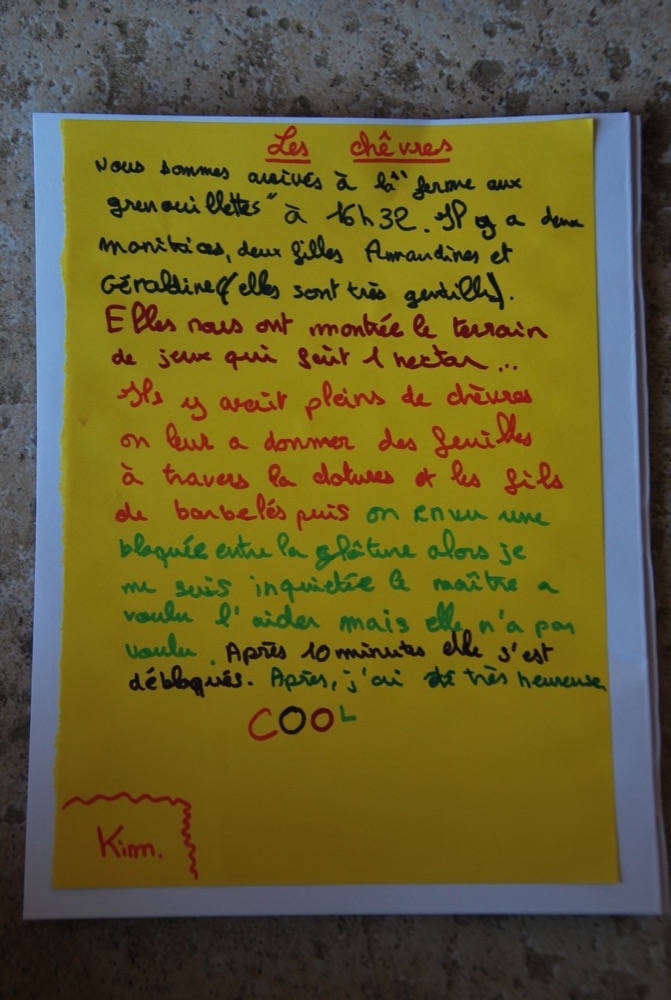 Les chêvres
Nous sommes arrivés à la "ferme aux
grenouillettes" à 16h32. Il y a deux
monitrices, deux filles Amandines et
Géraldine (elles sont très gentille).
Elles nous ont montrée le terrain
de jeux qui fait 1 hectar...
Ils y avait pleins de chèvres
on leur a donner des feuilles
à travers la clotures et les fils
de barbelés puis on en vu une
bloquée entre la clôture alors je
me suis inquietée le maître a
voulu l'aider mais elle n'a pas
voulu. Après 10 minutes elle s'est
débloqués. Après, j'ai été très heureuse
COOL
Kim.